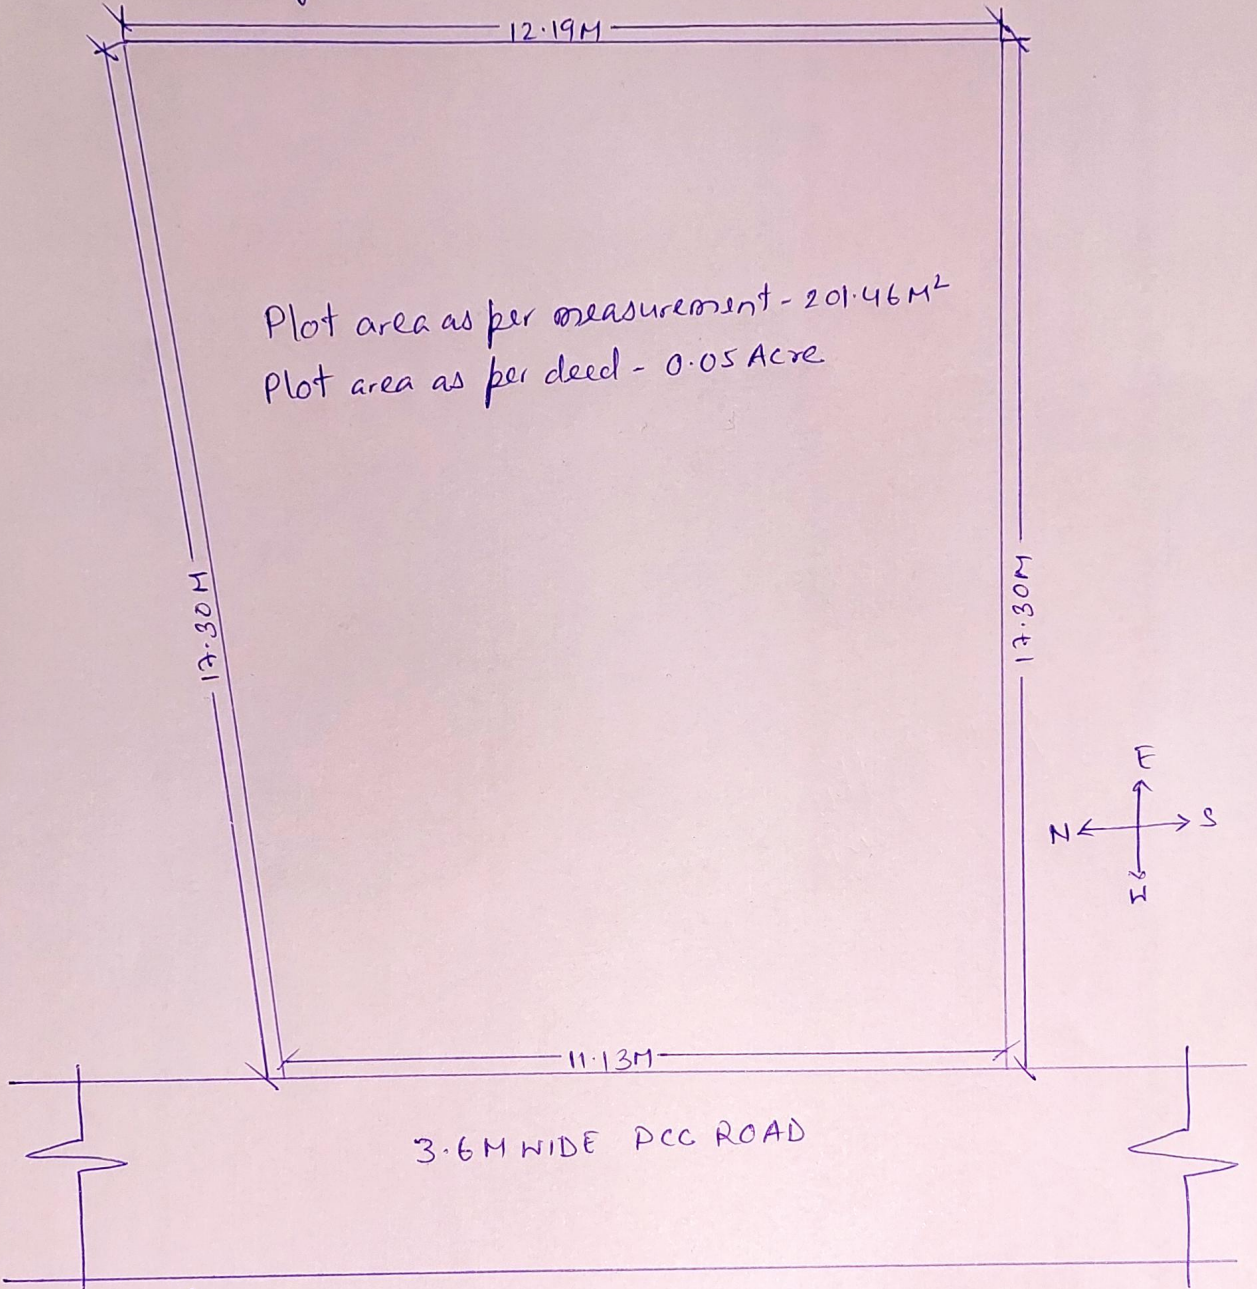 12.19M
Plot area as per measurement - 201.46 M²
Plot area as per deed - 0.05 Acre
17.30M
17.30M
E
N S
W
11.13M
3.6M WIDE PCC ROAD